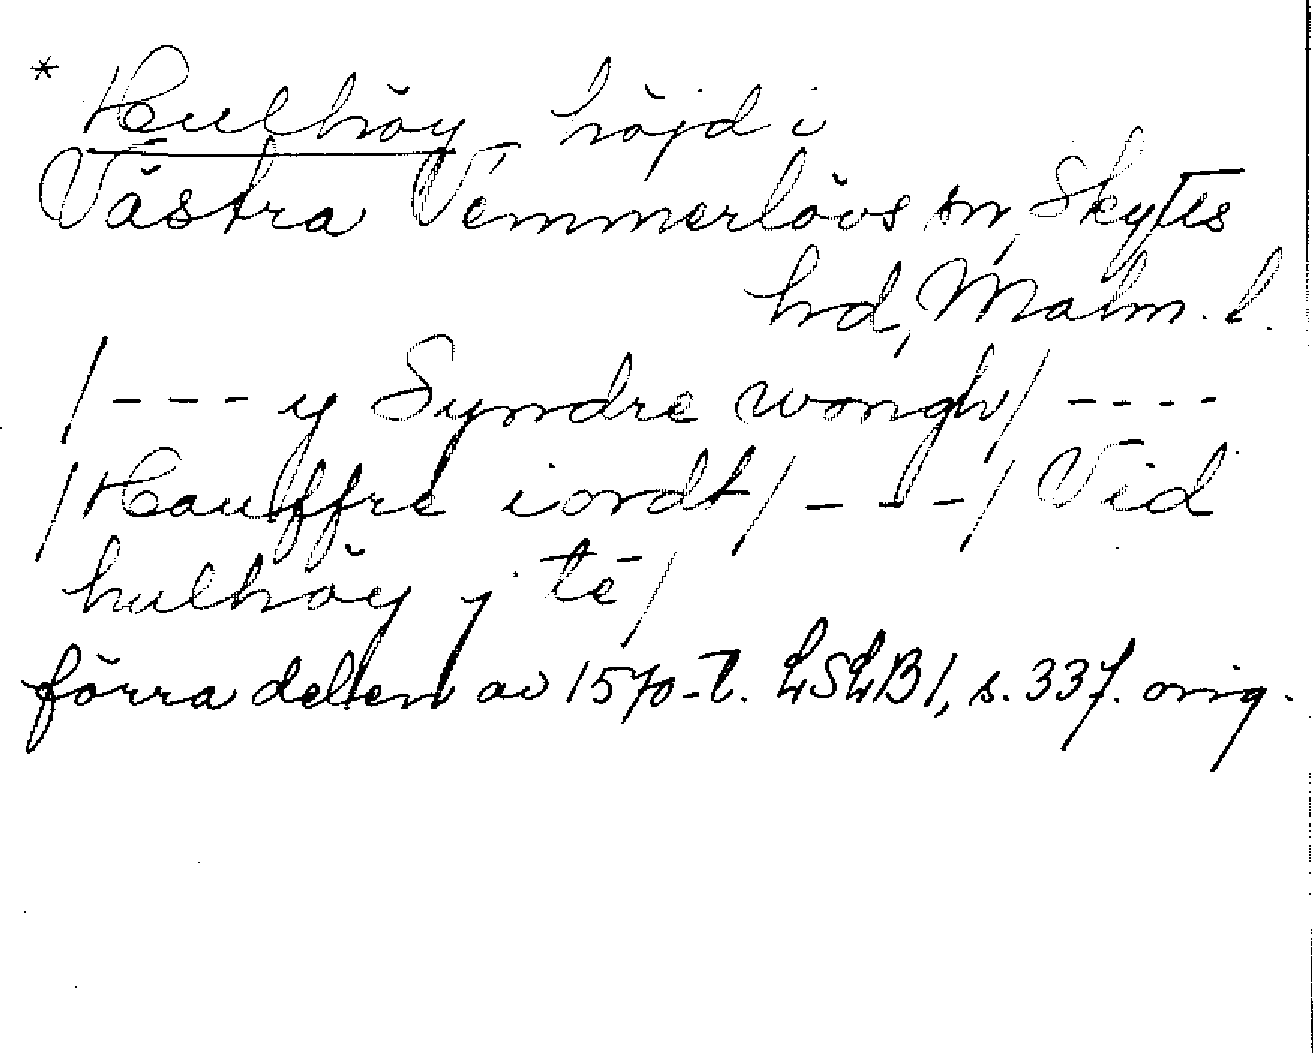 * Hulhöy höjd i
Västra Vemmerlövs sn, Skytts
hd, Malm. l.
/--- y Syndre wongh/ ----
/Hauffre iordt/ ---/ Vid
hulhöy j te/
förra delen av 1570-t. LSLB1, s. 337. orig.